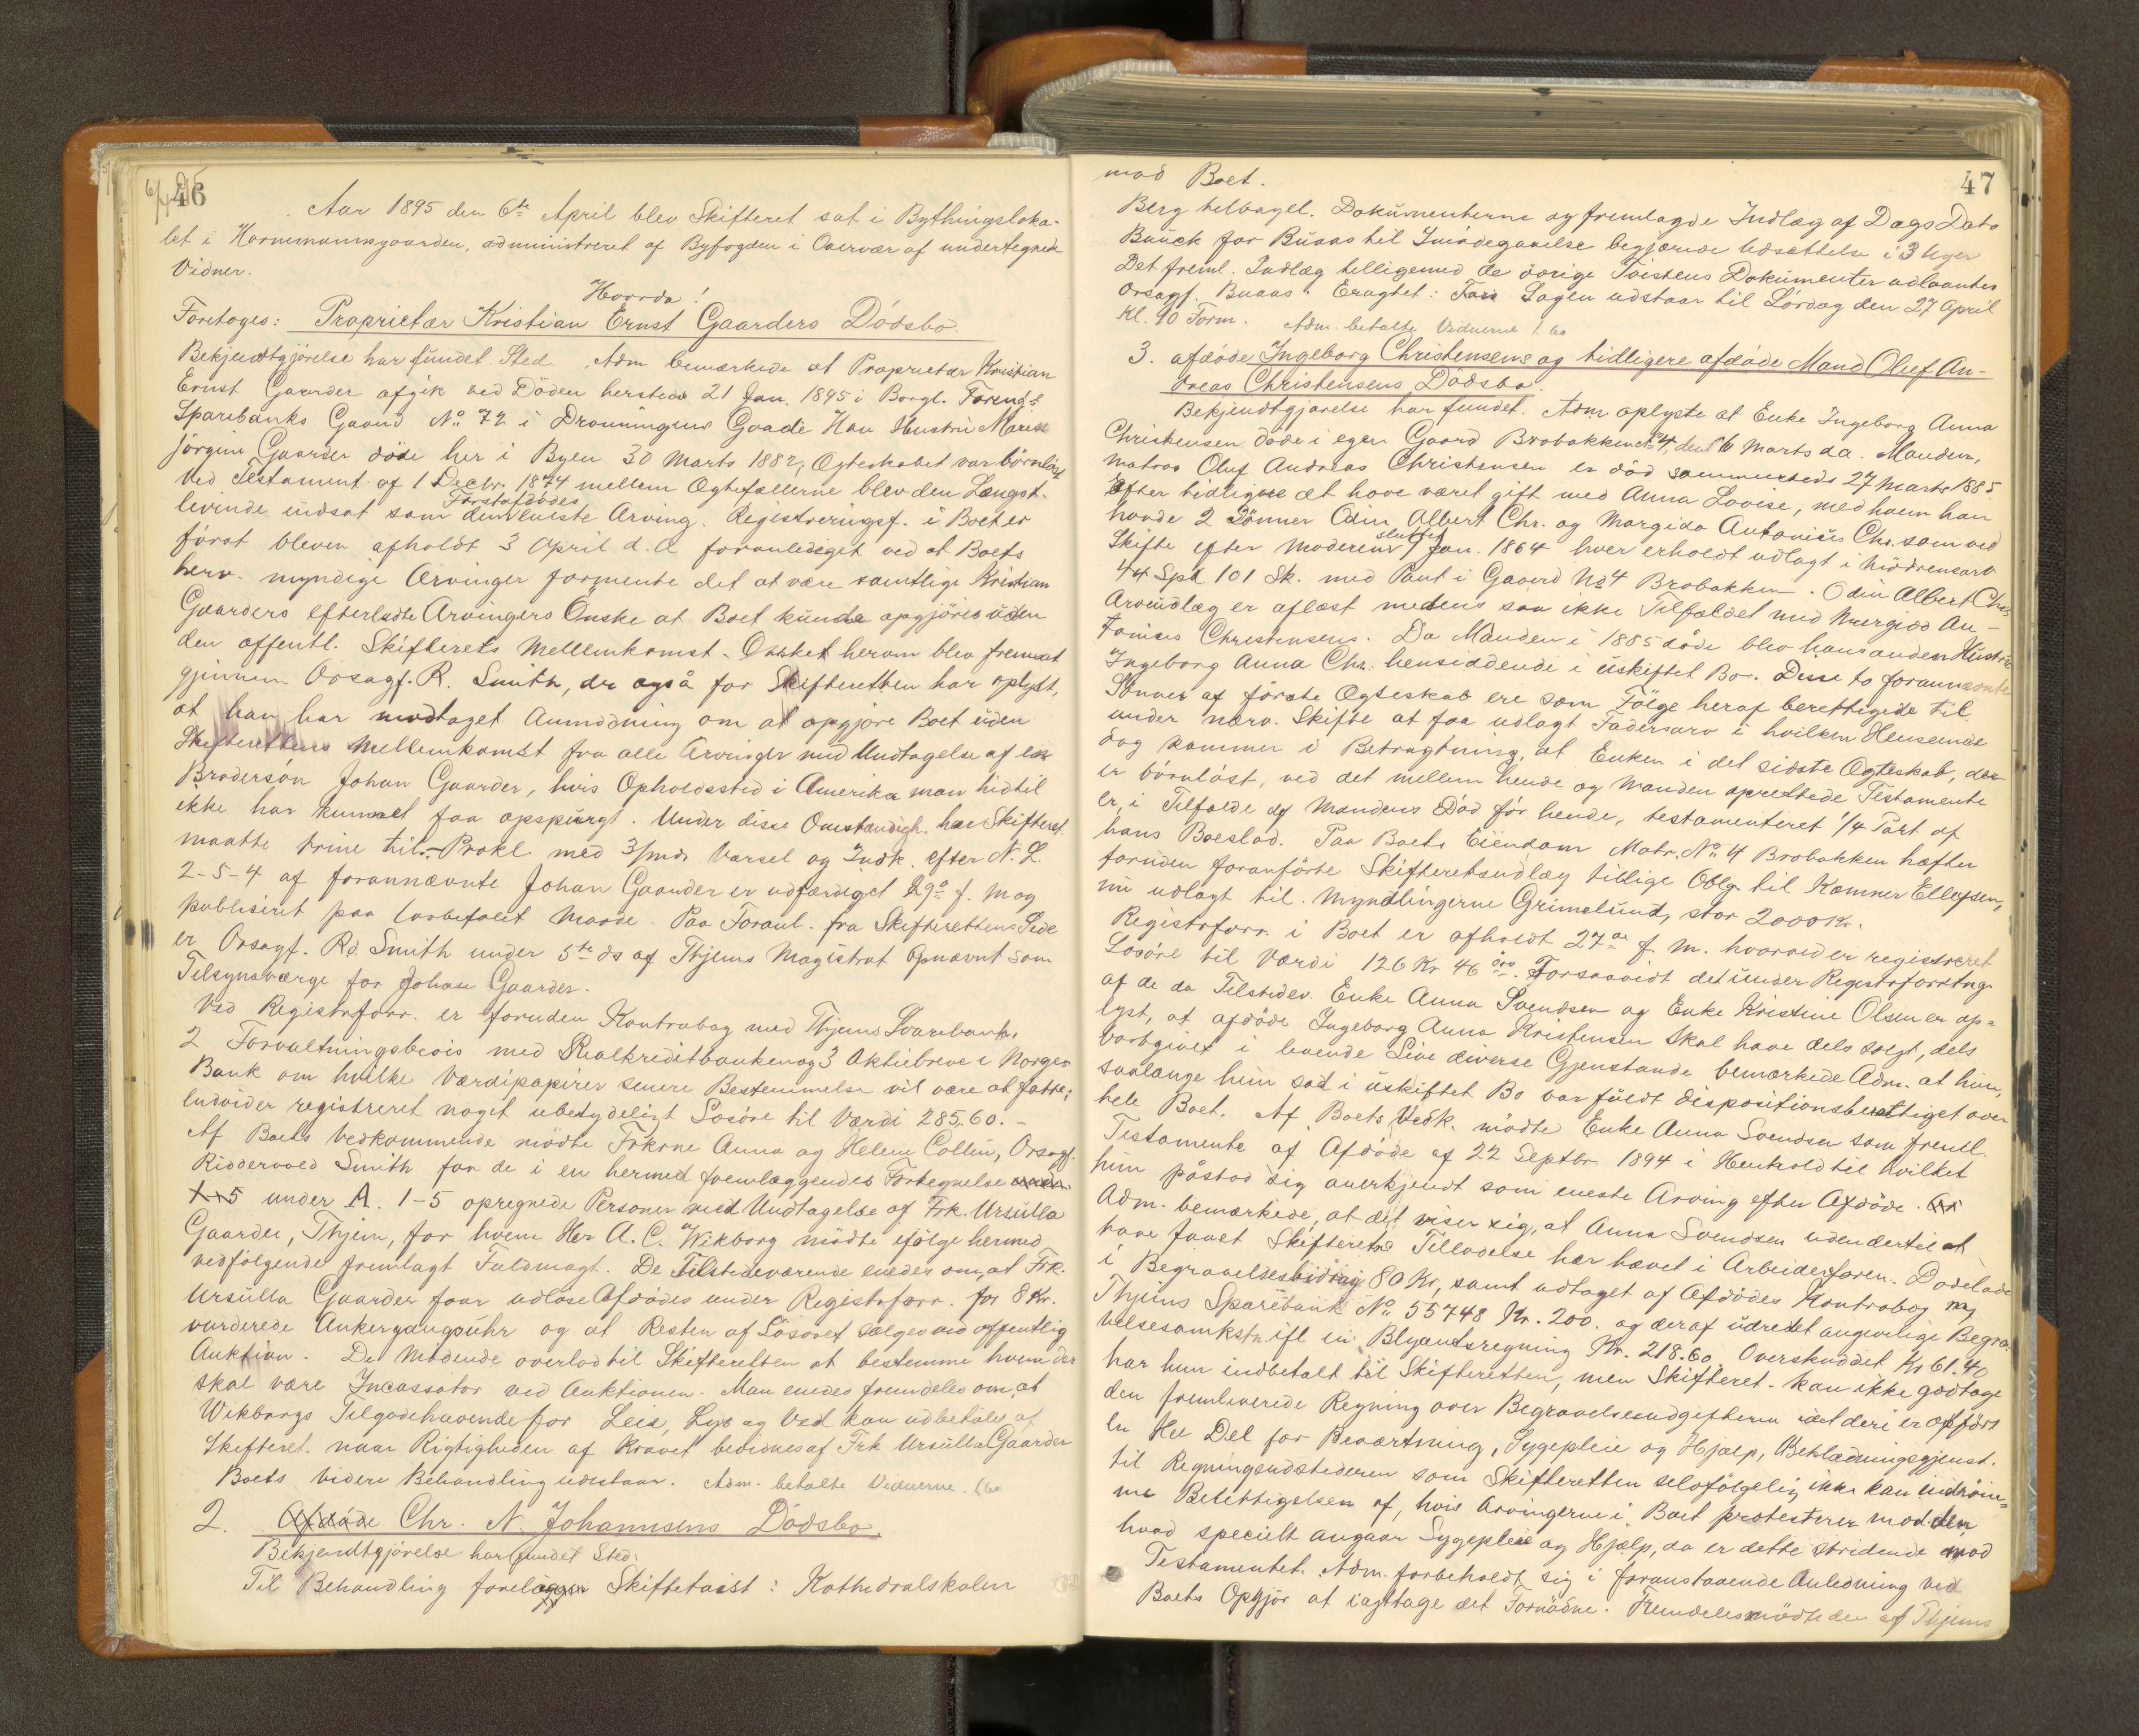 46
6/4 95
Aar 1895 den 6te April blev Skifteret sat i Bythingsloka-
let i Hornemannsgaarden, administreret af Byfogden i Overvær af undertegnede
Vidner.
Hvorda!
Foretoges: Proprietær Kristian Ernst Gaarders Dödsbo.
Bekjendtgjörelse har fundet Sted. Adm bemærkede at Proprietær Kristian
Ernst Gaarder afgik ved Döden hersteds 21 Jan. 1895 i Borgl. Forsngs
Sparebanks Gaard No 72 i Dronningens Gade Han Hustru Maren
Jörgine Gaarder döde her i Byen 30 Marts 1882, Ægteskabet var börnlöst
Ved Testament af 1 Decbr. 1874 mellem Ægtefællerne blev den Længst-
levende indsat som den Förstafdödes eneste Arving. Registreringsf. i Boet er
först bleven afholdt 3 April d. A foranlediget ved at Boets
herv. myndige Arvinger formente det at være samtlige Kristian
Gaarders efterladte Arvingers Önske at Boet kunde opgjöres uden
den offentl. Skifterets Mellemkomst. Önsket herom blev fremsat
gjennem Orsagf. R. Smith, der også for Skifteretten har oplyst,
at han har modtaget Anmodning om at opgjöre Boet uden
Skifterettens Mellemkomst fra alle Arvinger med Undtagelse af en
Brodersön Johan Gaarder, hvis Opholdssted i Amerika man hidtil
ikke har kunnet faa opspurgt. Under disse Omstændigh. har Skifteret.
maatte trine til. Prokl. med 3 mds Varsel og Indk. efter N. L.
2-5-4 af forannævnte Johan Gaarder er udfærdiget 29de f. M og
publiseret paa lovbefalet Maade. Paa Foranl. fra Skifterettens Side
er Orsagf. Rd. Smith under 5te ds af Thjems Magistrat opnævnt som
Tilsynsværge for Johan Gaarder.
Ved Registrforr. er foruden Kontrabog med Thjems Sparebank,
2 Forvaltningsbevis med Realkreditbanken og 3 Aktiebreve i Norges
Bank om hvilke Værdipapirer senere Bestemmelse vil være at fatte;
endvider registreret noget ubetydeligt Lösöre til Værdi 285,60.-
Af Boets Vedkommende mödte Frkrne Anna og Helene Collin, Orsagf.
Riddervold Smith for de i en hermed fremlæggendes Fortegnelse
1-5 under A. 1-5 opregnede Personer med Undtagelse af Frk. Ursulla
Gaarder, Thjem, for hvem Her A. C. Wikborg mödte ifölge hermed
vedfölgende fremlagt Fuldmagt. De Tilstedeværende enedes om, at Frk.
Ursulla Gaarder faar udlöse Afdödes under Registrforr. for 8 Kr.
vurderede Ankergangsuhr og at Resten af Lösöret sælges ved offentlig
Auktion. De Mödende overlod til Skifteretten at bestemme hvem der
skal være Incassator ved Auktionen. Man enedes fremdeles om, at
Wikborgs Tilgodehavende for Leie, Lys og Ved kan udbetales af
Skifteret. naar Rigtigheden af Kravet bevidnes af Frk Ursulla Gaarder
Boets videre Behandling udestaar. Adm. betalte Vidnerne 1.60
2. Afdöde Chr. N. Johannsens Dödsbo.
Bekjendtgjörelse har fundet Sted.
Til Behandling forelægges Skiftetvist: Kathedralskolen
47
mod Boet.
Berg tilbagel. Dokumenterne og fremlagde Indlæg af Dags Dato
Buuck for Buaas til Imödegaaelse begjærede Udsættelse i 3 Uger
Det freml. Indlæg tilligemed de övrige Tvistens Dokumenter udlaantes
Orsagf. Buaas. Eragtet: Sagen udstaar til Lördag den 27 April
Kl. 10 Form. Adm. betalte Vidnerne 1.60
3. Afdöde Ingeborg Christensens og tidligere afdöde Mand Oluf An-
dreas Christensens Dödsbo.
Bekjendtgjörelse har fundet. Adm oplyste at Enke Ingeborg Anna
Christensen döde i egen Gaard Brobakken No 4, den 16 Marts da. Manden,
Matros Oluf Andreas Christensen er död sammesteds 27 Marts 1885
Efter tidligere at have været gift med Anna Lovise, med hvem han
havde 2 Sönner Odin Albert Chr. og Margido Antonius Chr. som ved
Skifte efter Moderen sluttet 9 Jan. 1864 hver erholdt udlagt i Mödrenearv
44 Spd 101 Sk. med Pant i Gaard No 4 Brobakken. Odin Albert Chrs
Arveudlæg er aflæst medens saa ikke Tilfældet med Margido An-
tonius Christensens. Da Manden i 1885 döde blev hans anden Hustru
Ingeborg Anna Chr. hensiddende i uskiftet Bo. Disse to forannævnte
Sönner af förste Ægteskab ere som Fölge heraf berettigede til
under nærv. Skifte at faa udlagt Fadersarv i hvilken Henseende
dog kommer i Betragtning, at Enken i det sidste Ægteskab, der
er börnlöst, ved det mellem hende og Manden oprettede Testamente
er, i Tilfælde af Mandens Död för hende, testamenteret 1/4 Part af
hans Boeslod. Paa Boets Eiendom Matr. No 4 Brobakken hæfter
foruden foranförte Skifteretsudlæg tillige Oblg. til Kæmner Ellefsen,
nu udlagt til Myndlingerne Grimelund, stor 2000 Kr.
Registrforr. i Boet er afholdt 27de f. M. hvorved er registreret
Lösöre til Værdi 126 Kr 46 öre. Forsaavidt det under Registrforretng.
af de da Tilstedev. Enke Anna Svendsen og Enke Kristine Olsen er op-
lyst, at afdöde Ingeborg Anna Kristensen skal have dels solgt, dels
bortgivet i levende Live diverse Gjenstande bemærkede Adm. at hun,
saalænge hun sad i uskiftet Bo var fuldt dispositionsberettiget over
hele Boet. Af Boets Vedk. mödte Enke Anna Svendsen som freml.
Testamente af Afdöde af 22 Septbr. 1894 i Henhold til hvilket
hun påstod sig anerkjendt som eneste Arving efter Afdöde.
Adm. bemærkede, at det viser sig, at Anna Svendsen uden dertil at
have faaet Skifterets Tilladelse har hævet i Arbeiderforen. Dödslade
i Begravelsesbidrag 80 Kr, samt udtaget af Afdödes Kontrabog m/
Thjems Sparebank No 55748 Kr. 200. og deraf udredet angivelige Begra-
velsesomkstn. ifl. en Blyantsregning Kr. 218.60. Overskuddet Kr 61.40
har hun indbetalt til Skifteretten, men Skifteret. kan ikke godtage
den fremleverede Regning over Begravelsesudgifterne idet deri er opfört
en Hel Del for Beværtning, Sygepleie og Hjælp, Beklædningsgjenst.
til Regningsudstederen som Skifteretten selvfölgelig ikke kan indröm-
me Berettigelsen af, hvis Arvingerne i Boet protesterer mod den
hvad specielt angaar Sygepleie og Hjælp, da er dette stridende mod
Testamentet. Adm. forbeholdt sig i foranstaaende Anledning ved
Boets Opgjör at iagttage det Fornödne. Fremdeles mödte den af Thjems